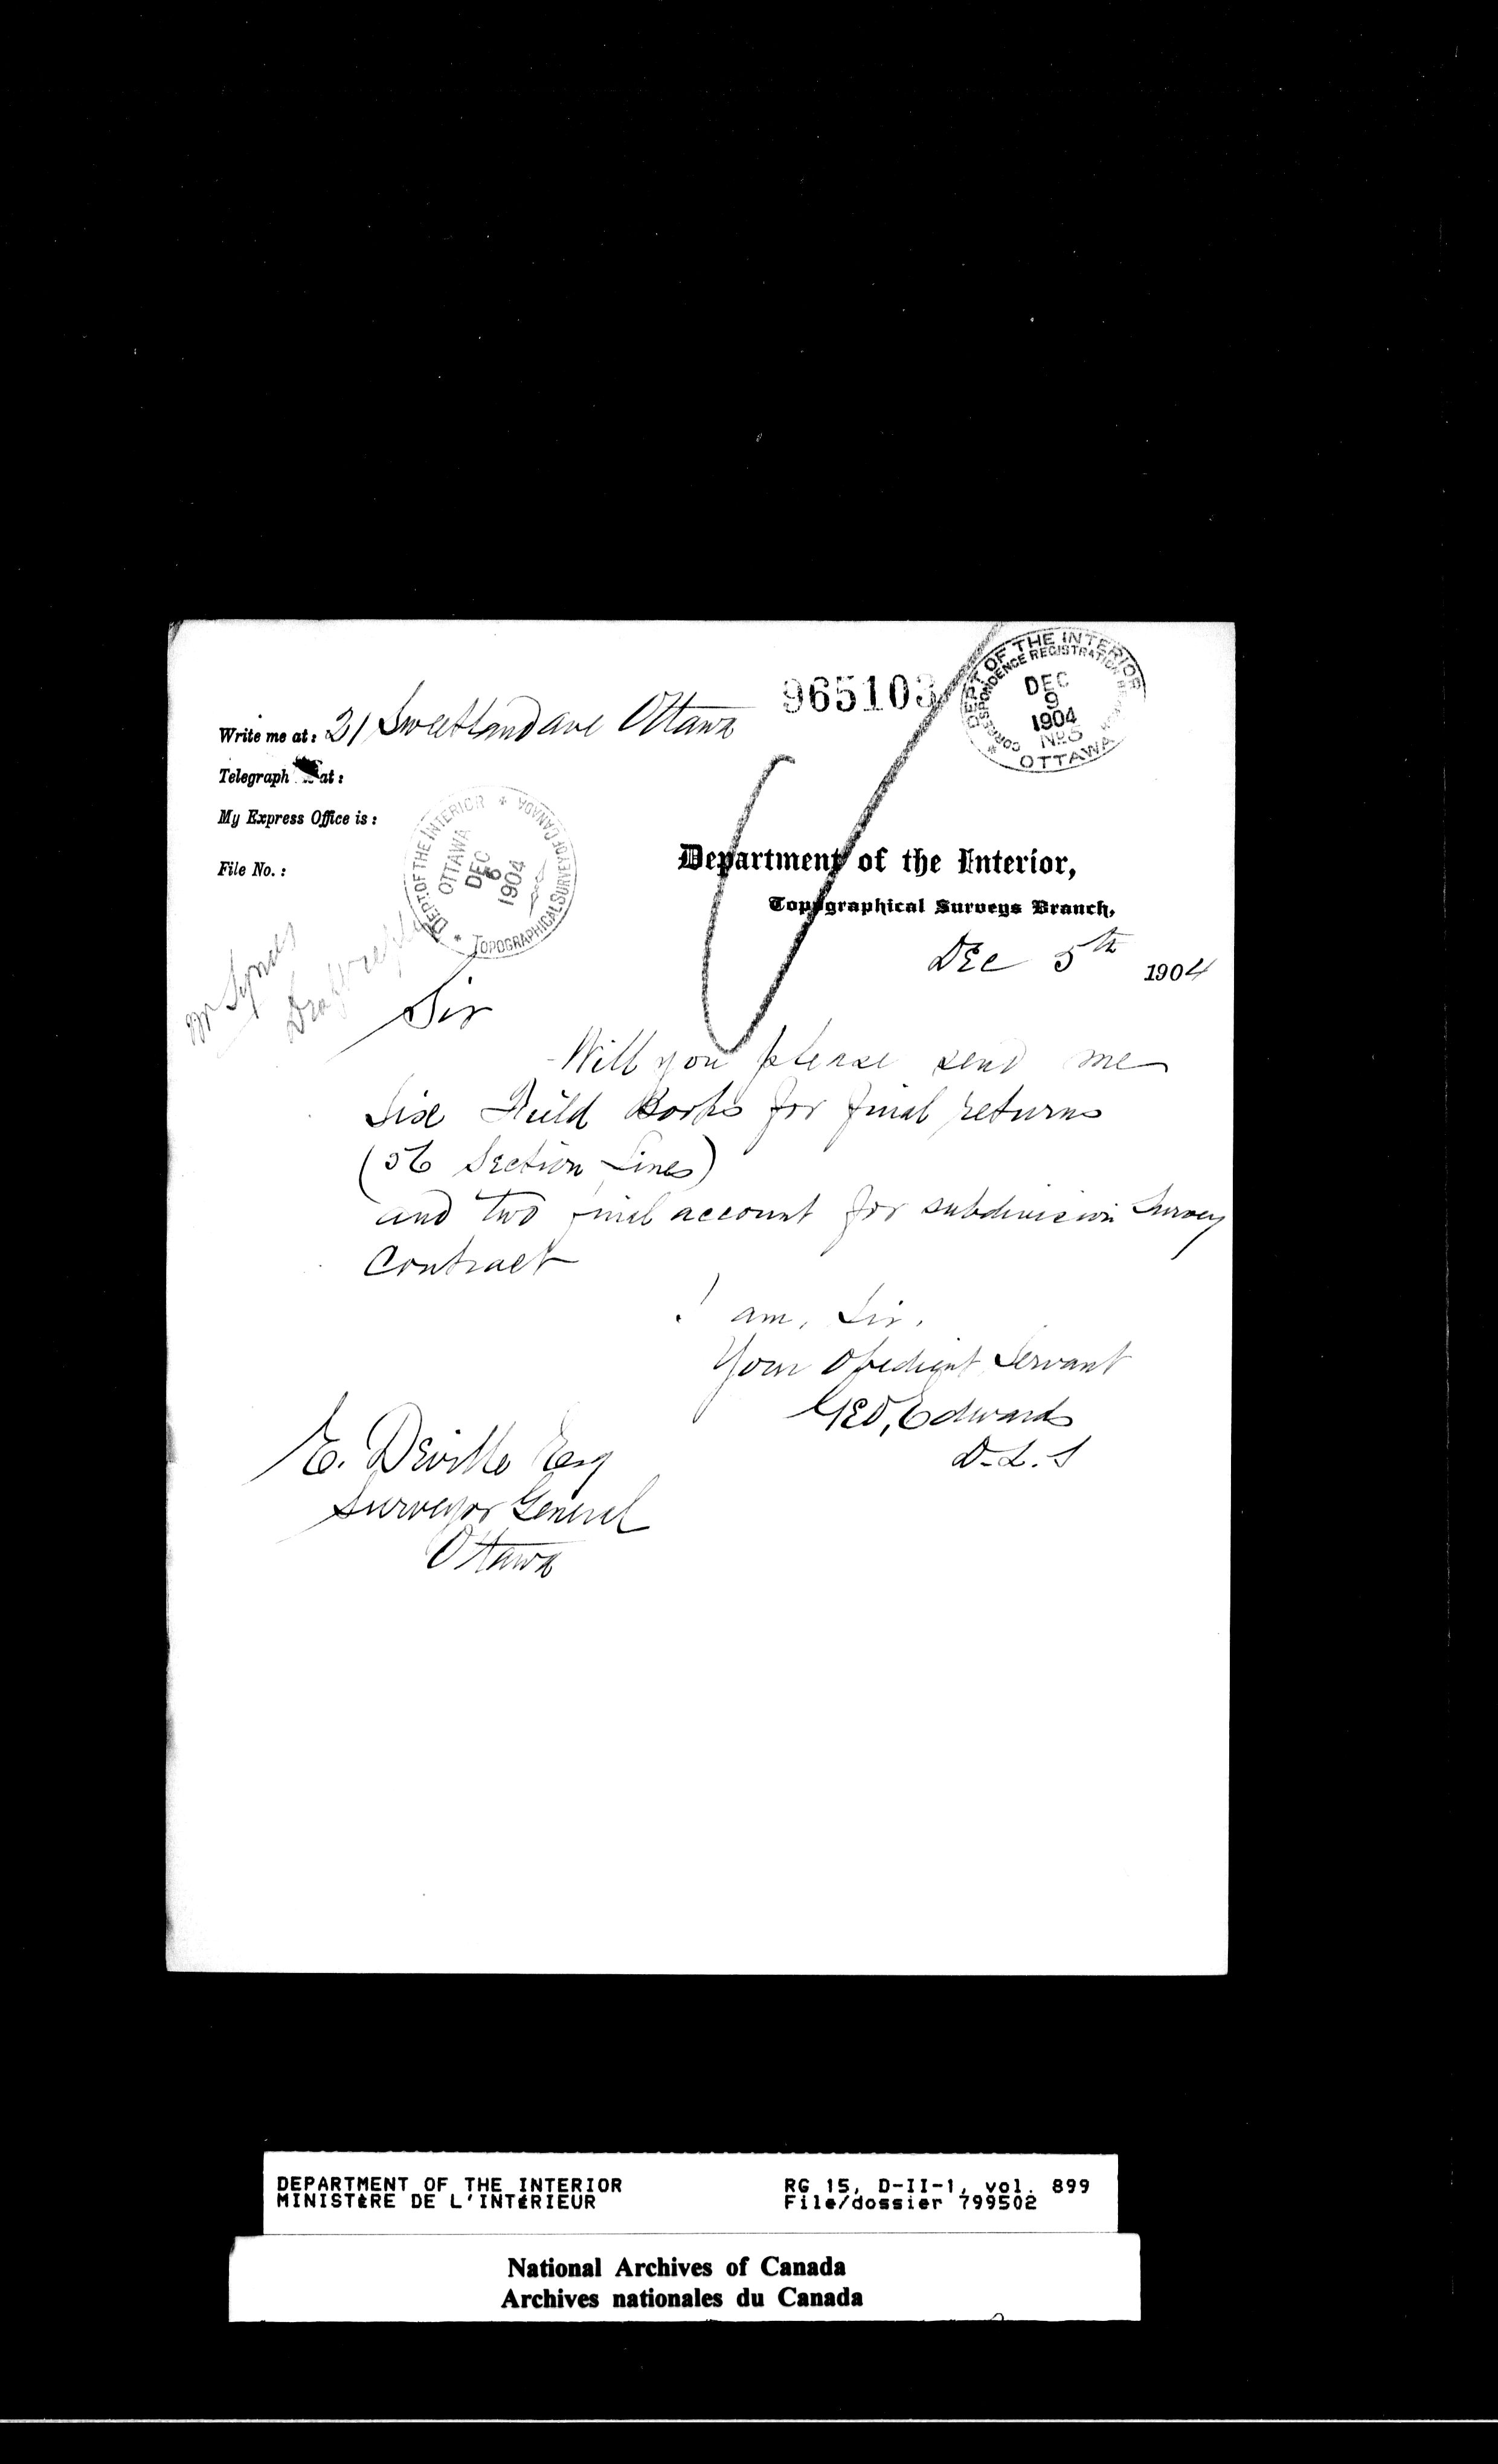 965103
DEPT OF THE INTERIOR
CORRESPONDENCE REGISTRATION BRANCH
DEC
9
1904
No 5
OTTAWA
Write me at: 21 Sweetland ave Ottawa
Telegraph at:
My Express Office is:
File No.:
DEPT. OF THE INTERIOR * TOPOGRAPHICAL SURVEY OF CANADA *
OTTAWA
DEC
6
1904
Department of the Interior,
Topographical Surveys Branch,
Dec 5th 1904
Mr Symes
Draft reply
Sir
Will you please send me
Six Field Books for final returns
(56 Section Lines)
and two final account for subdivision Survey
Contract
I am, Sir,
Your Obedient Servant
Geo, Edwards
D.L.S
E. Deville Esq
Surveyor General
Ottawa
DEPARTMENT OF THE INTERIOR RG 15, D-II-1, vol. 899
MINISTÈRE DE L'INTÉRIEUR File/dossier 799502
National Archives of Canada
Archives nationales du Canada